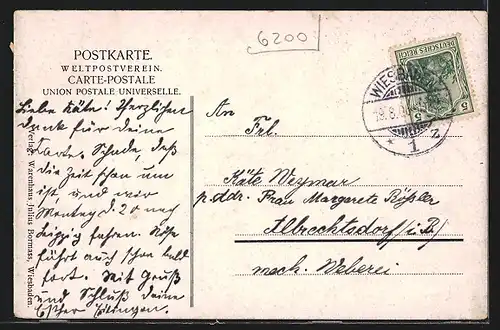 6200
POSTKARTE.
WELTPOSTVEREIN.
CARTE-POSTALE
UNION POSTALE UNIVERSELLE.
Liebe Käte! Herzlichen
Dank für deine
Karte. Schade, daß
die Zeit schon um
ist, und wir
Montag d. 20 nach
Leipzig fahren.
fährt auch schon bald
fort. Mit Gruß
und Schluß deine
Esther
An
Frl.
Käte Weymar
p. Adr. Frau Margarete Rößler
Albrechtsdorf i/B
mech. Weberei
Verlag: Warenhaus Julius Bormass, Wiesbaden.
DEUTSCHES REICH
5 5
WIESBADEN
* 1